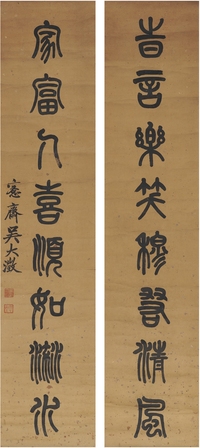 吉言樂笑穆若清風
家富人喜順如流水
愙齋吳大澂